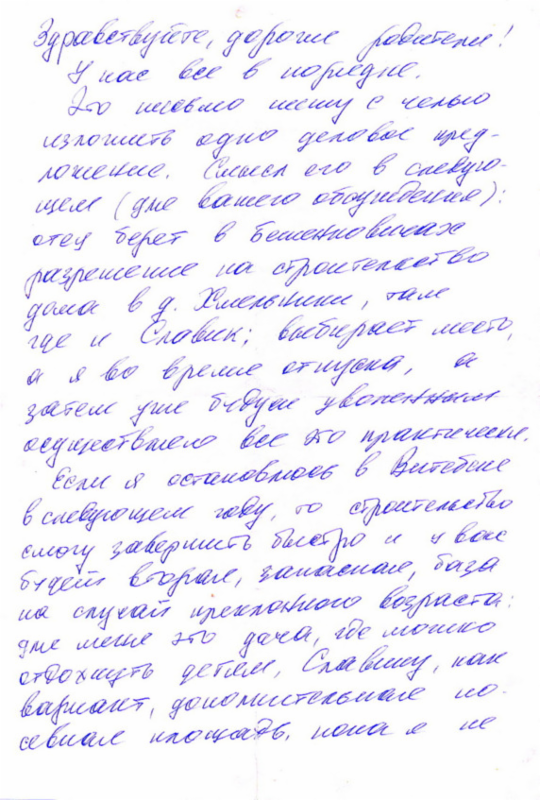 Здравствуйте, дорогие родители!
У нас все в порядке.
Это письмо пишу с целью
изложить одно деловое пред-
ложение. Смысл его в следую-
щем (для вашего обсуждения):
отец берет в Бешенковичах
разрешение на строительство
дома в д. Хмельники, там
где и Славик; выбирает место,
а я во время отпуска, а
затем уже будучи уволенным
осуществляю все это практически.
Если я остановлюсь в Витебске
в следующем году, то строительство
смогу завершить быстро и у вас
будет вторая, запасная, база
на случай преклонного возраста:
для меня это дача, где можно
отдохнуть детям, Славику, как
вариант, дополнительная по-
севная площадь, пока я не